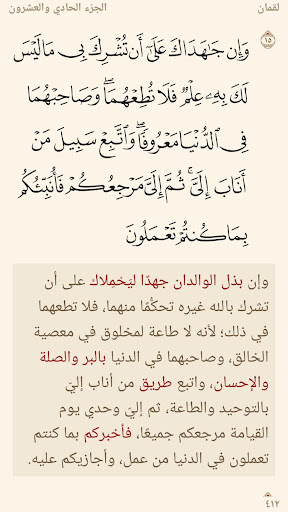 لقمان الجزء الحادي والعشرون
١٥
وَإِن جَٰهَدَاكَ عَلَىٰٓ أَن تُشۡرِكَ بِي مَا لَيۡسَ
لَكَ بِهِۦ عِلۡمٞ فَلَا تُطِعۡهُمَاۖ وَصَاحِبۡهُمَا
فِي ٱلدُّنۡيَا مَعۡرُوفٗاۖ وَٱتَّبِعۡ سَبِيلَ مَنۡ
أَنَابَ إِلَيَّۚ ثُمَّ إِلَيَّ مَرۡجِعُكُمۡ فَأُنَبِّئُكُم
بِمَا كُنتُمۡ تَعۡمَلُونَ
وإن بذل الوالدان جهدًا ليَحْمِلاك على أن
تشرك بالله غيره تحكُّمًا منهما، فلا تطعهما
في ذلك؛ لأنه لا طاعة لمخلوق في معصية
الخالق، وصاحبهما في الدنيا بالبر والصلة
والإحسان، واتبع طريق من أناب إليّ
بالتوحيد والطاعة، ثم إليّ وحدي يوم
القيامة مرجعكم جميعًا، فأخبركم بما كنتم
تعملون في الدنيا من عمل، وأجازيكم عليه.
٤١٢